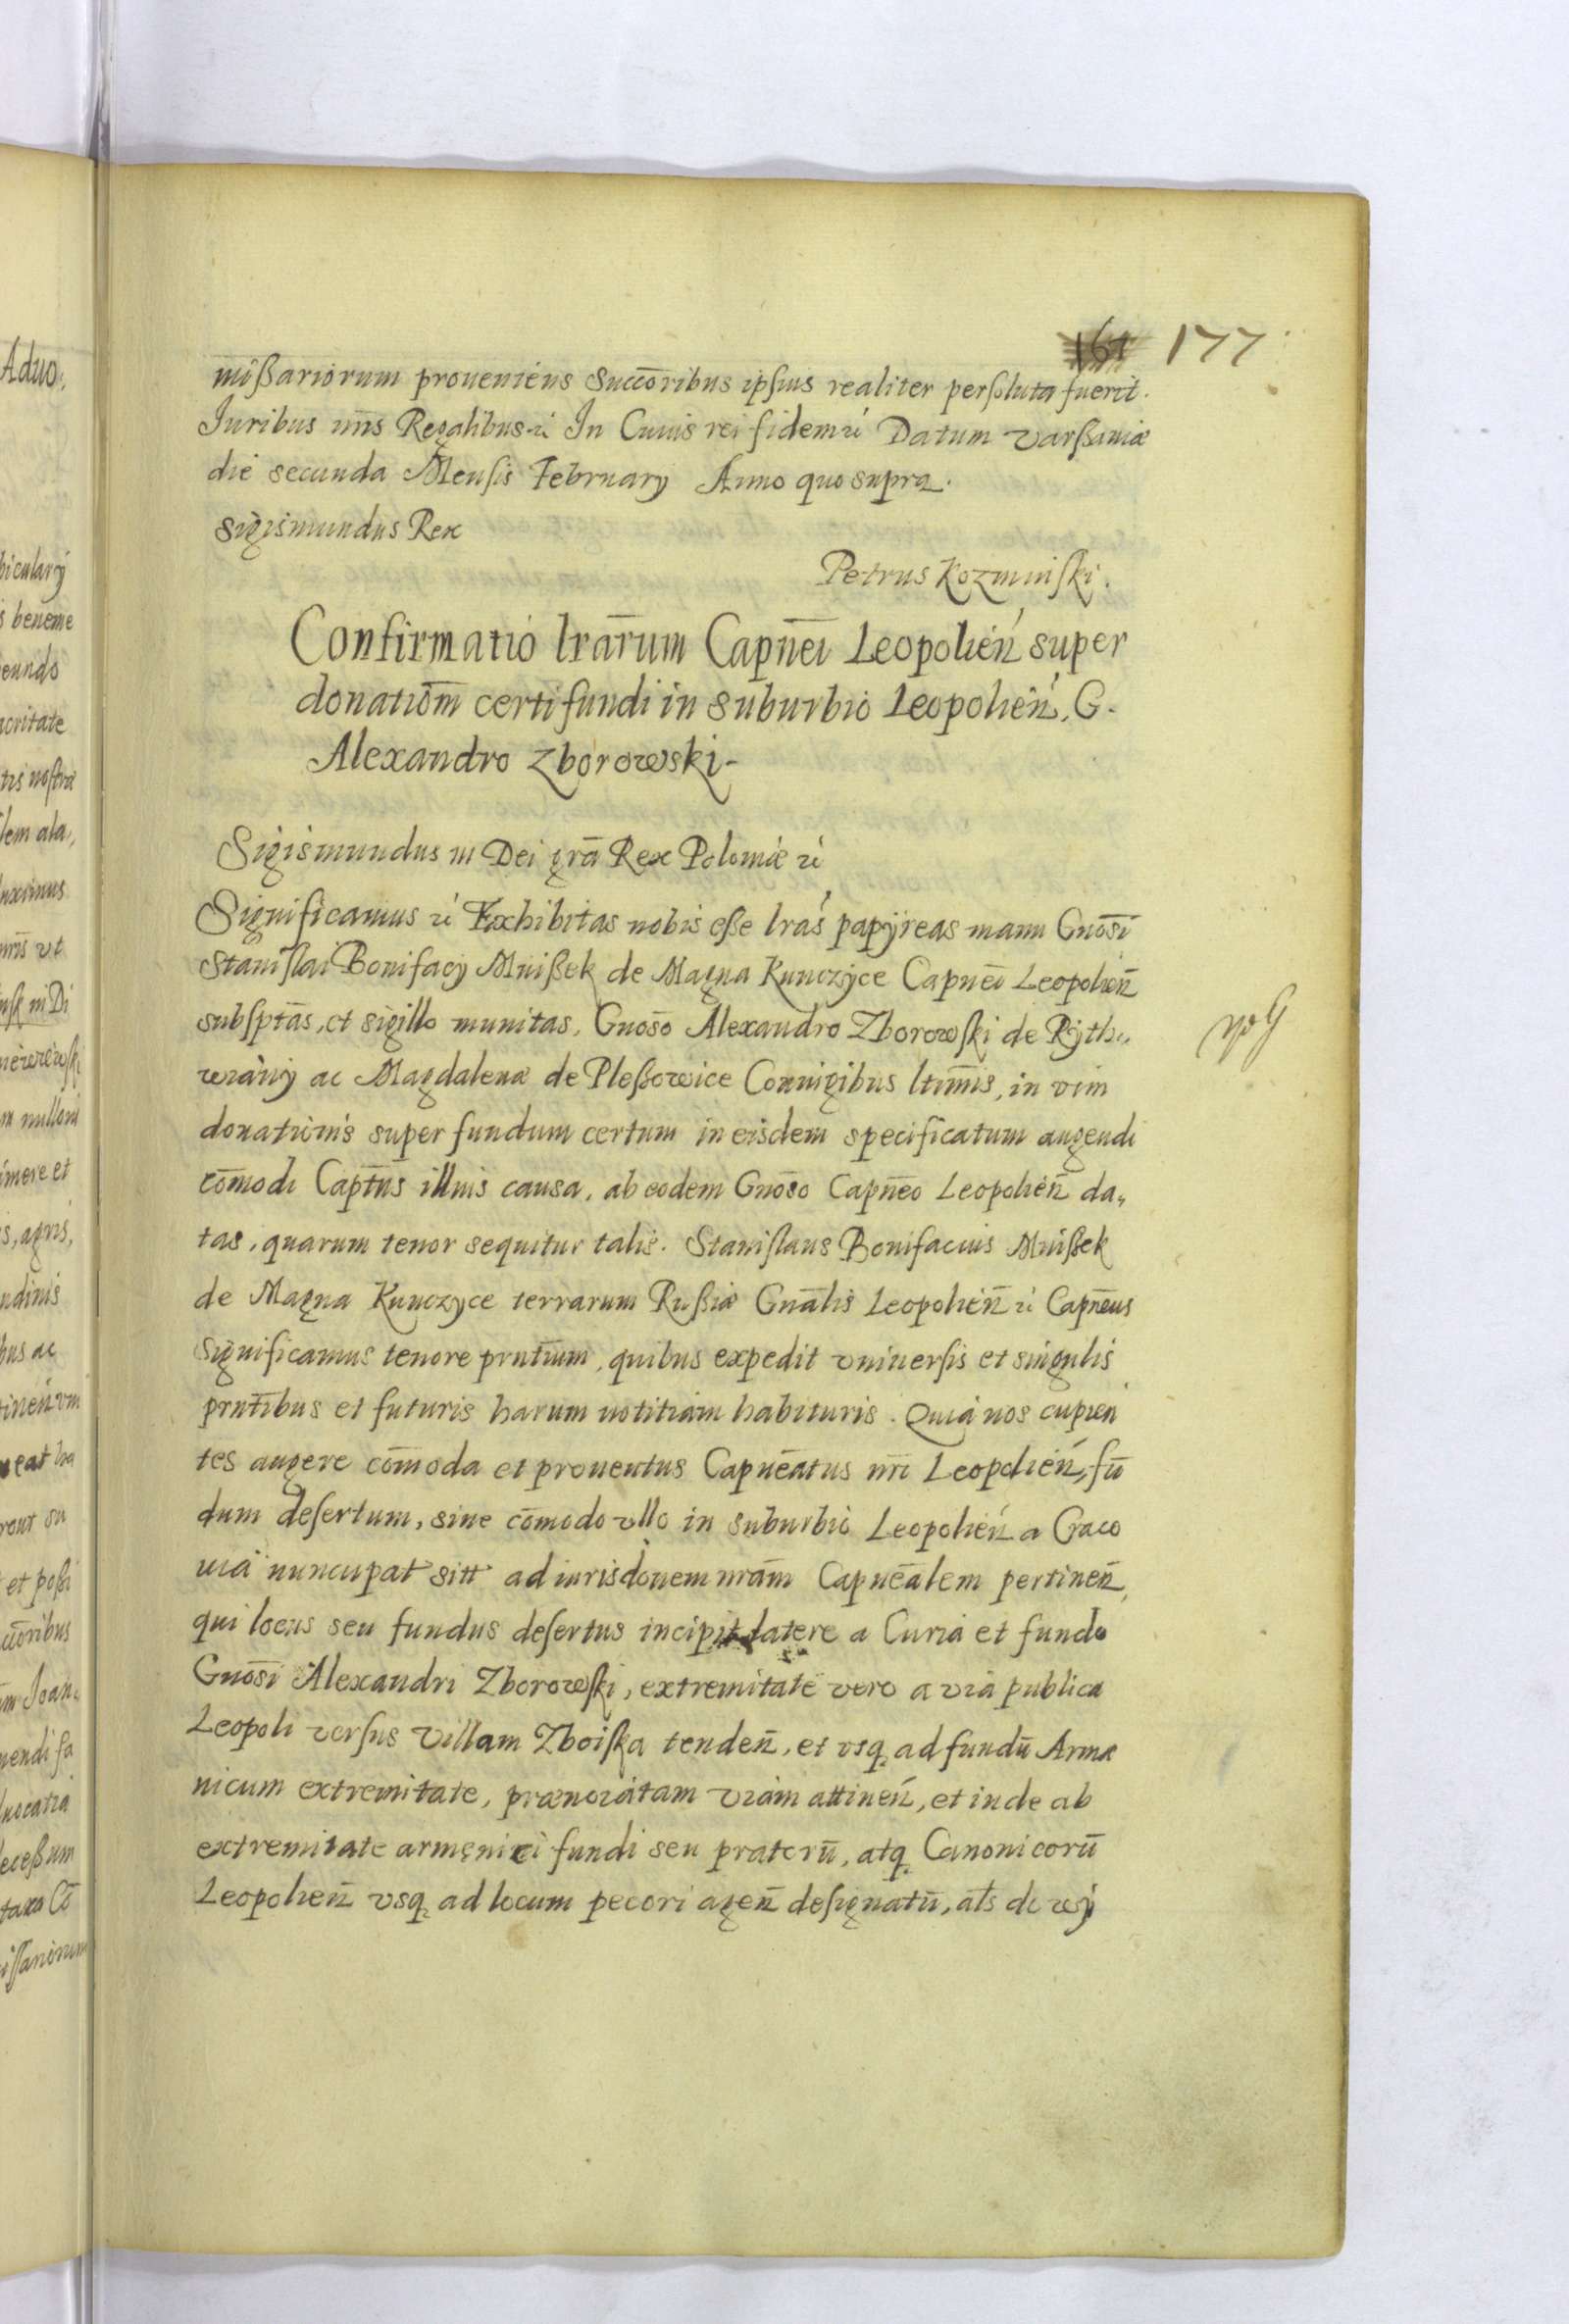 161 177
mißariorum proueniens Succõribus ipſius realiter perſoluta fuerit.
Iuribus nr̃is Regalibus ꝛc In Cuius rei fidem ꝛc Datum Varßauiæ
die secunda Menſis February Anno quo supra.
Sigismundus Rex
Petrus Kozminſki.
Confirmatio lrãrum Capñei Leopolień super
donatiom̃ certi fundi in suburbio Leopolień, G.
Alexandro Zborowski-
Sigismundus III Dei grã Rex Poloniæ ꝛc
Significamus ꝛc Exhibitas nobis eße lrás papÿreas manu Gnõsi
Staniſlai Bonifacy Mnißek de Magna Kunczÿce Capnẽi Leopolien̄
subſptãs, et sigillo munitas, Gnõso Alexandro Zborowſki de Rÿth„
wiány ac Magdalenæ de Pleßowice Coniugibus ltim̃is, in vim
donationis super fundum certum in eisdem specificatum augendi
cõmodi Captñs illius causa, ab eodem Gnõso Capñeo Leopolien̄ da„
tas, quarum tenor sequitur talis. Staniſlaus Bonifacius Mnißek
de Magna Kunczyce terrarum Rußiæ Gnãlis Leopolien̄ ꝛc Capñeus
Significamus tenore prntĩum, quibus expedit vniuerſis et singulis
prntĩbus et futuris harum notitiam habituris. Quia nos cupien
tes augere cõmoda et prouentus Capnẽatus nrĩ Leopolień, fũ
dum deſertum, sine cõmodo vllo in suburbio Leopolień a Craco
uia nuncupat sitt ad iurisdõnem nrãm Capnẽalem pertinen̄,
qui locus seu fundus deſertus incipit latere a Curia et fundo
Gnõsi Alexandri Zborowſki, extremitate vero a via publica
Leopoli verſus Villam Zboiſka tenden̄, et vsq ad fundũ Armæ
nicum extremitate, prænotatam viam attineń, et inde ab
extremitate armęnici fundi seu pratorũ, atq Canonicorũ
Leopolien̄ vsq ad locum pecori agen̄ deſignatũ, als do wÿ